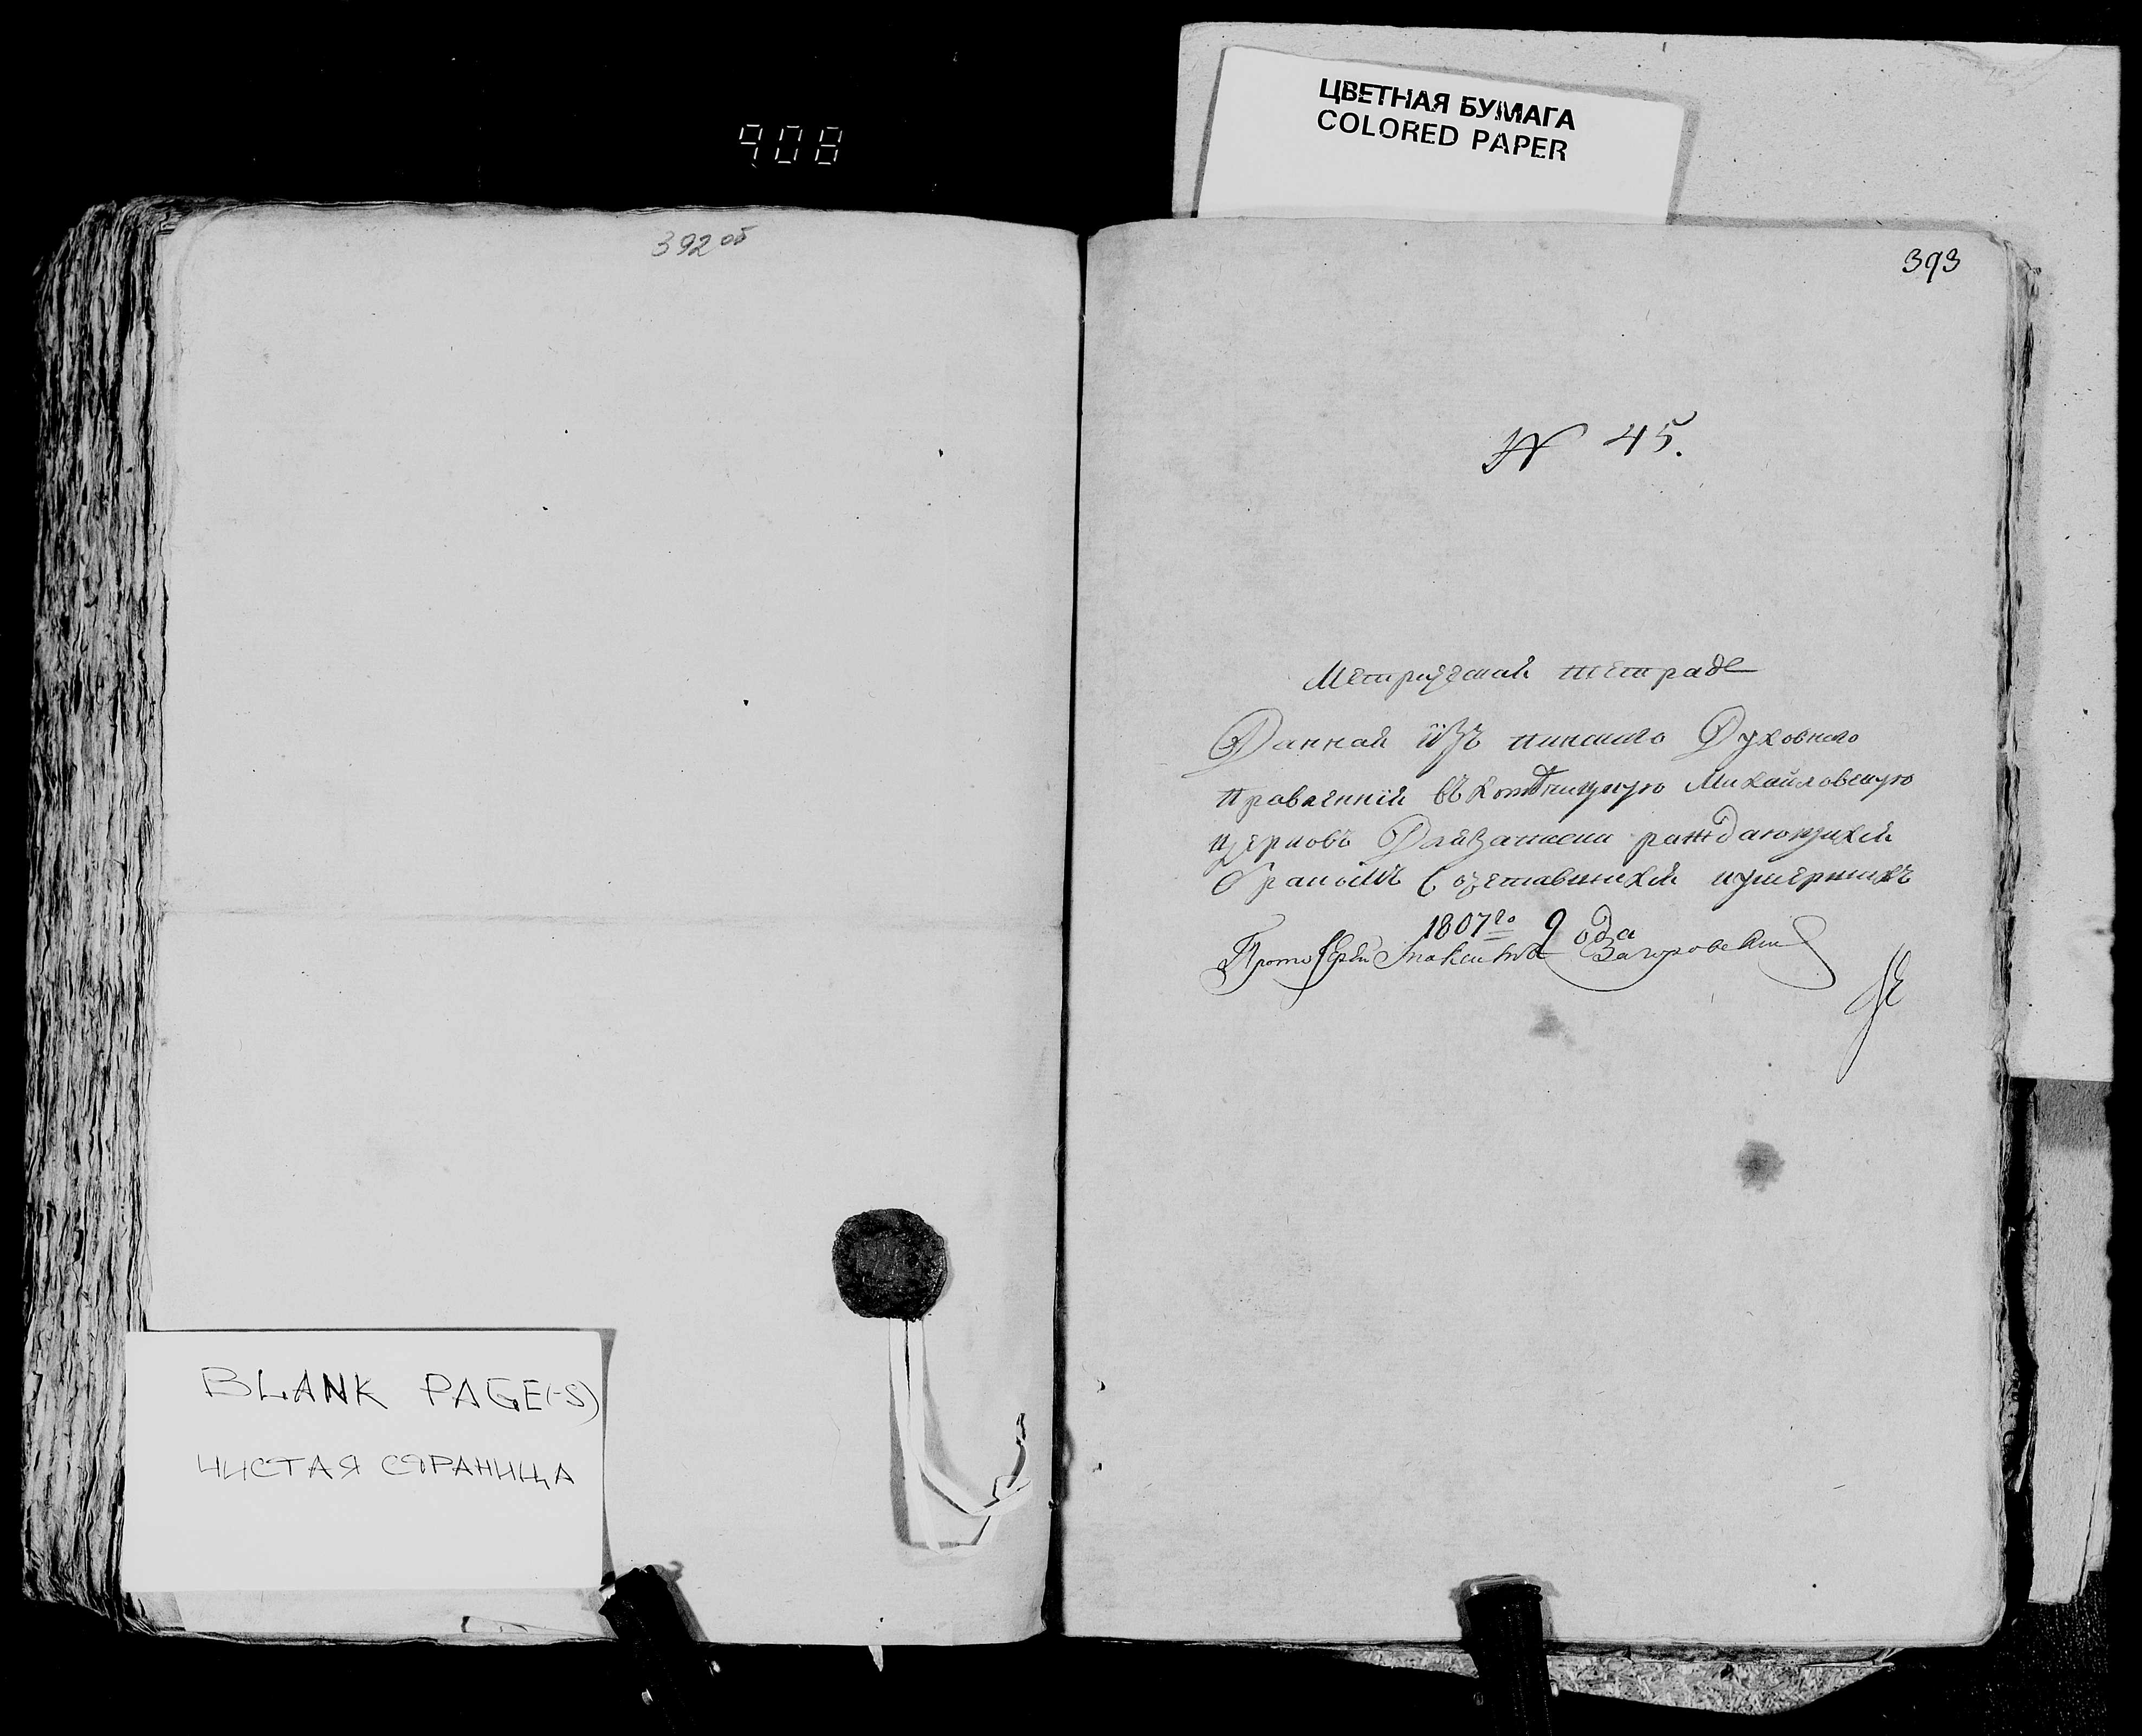 908
ЦВЕТНАЯ БУМАГА
COLORED PAPER
392 об
393
№ 45.
Метрической тетраде
Данной изъ пинского Духовного
правленнiй въ Михайловскую
церковь Длязаписки раждающихся
бракомъ Сочетавшихся иумершихъ
1807го Года
Протоiерей Загоровский
BLANK PAGE(-S)
ЧИСТАЯ СТРАНИЦА